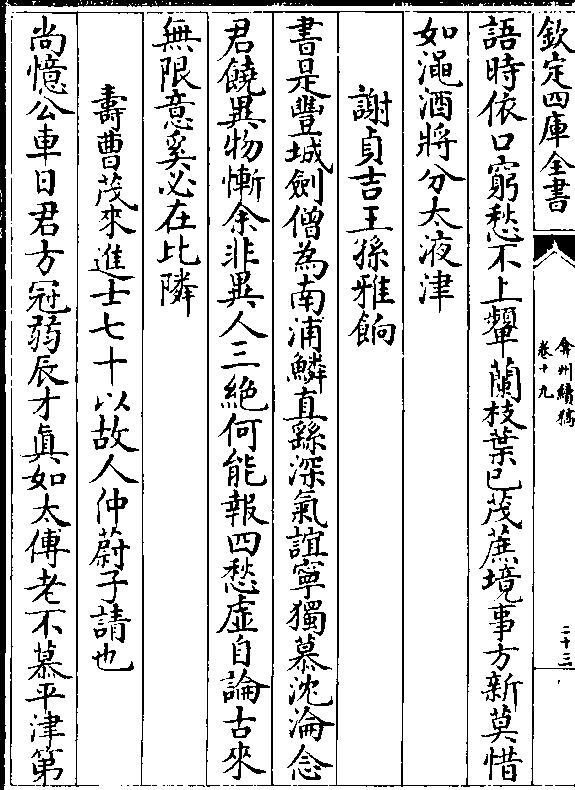 欽定四庫全書
弇州續稿
卷十九
二十三
語時依口窮愁不上顰蘭枝葉已茂蔗境事方新莫惜
如澠酒將分太液津
謝貞吉王孫雅餉
書是豐城劍僧為南浦鱗直繇深氣誼寧獨慕沈淪念
君饒異物慚余非異人三絶何能報四愁虛自論古來
無限意奚必在比隣
壽曹茂來進士七十以故人仲蔚子請也
尚憶公車日君方冠弱辰才真如太傅老不慕平津第